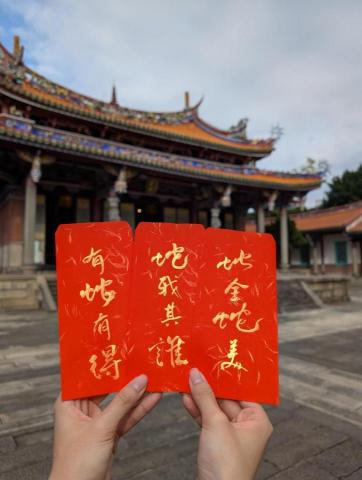 有蛇有得
蛇我其誰
蛇全蛇美